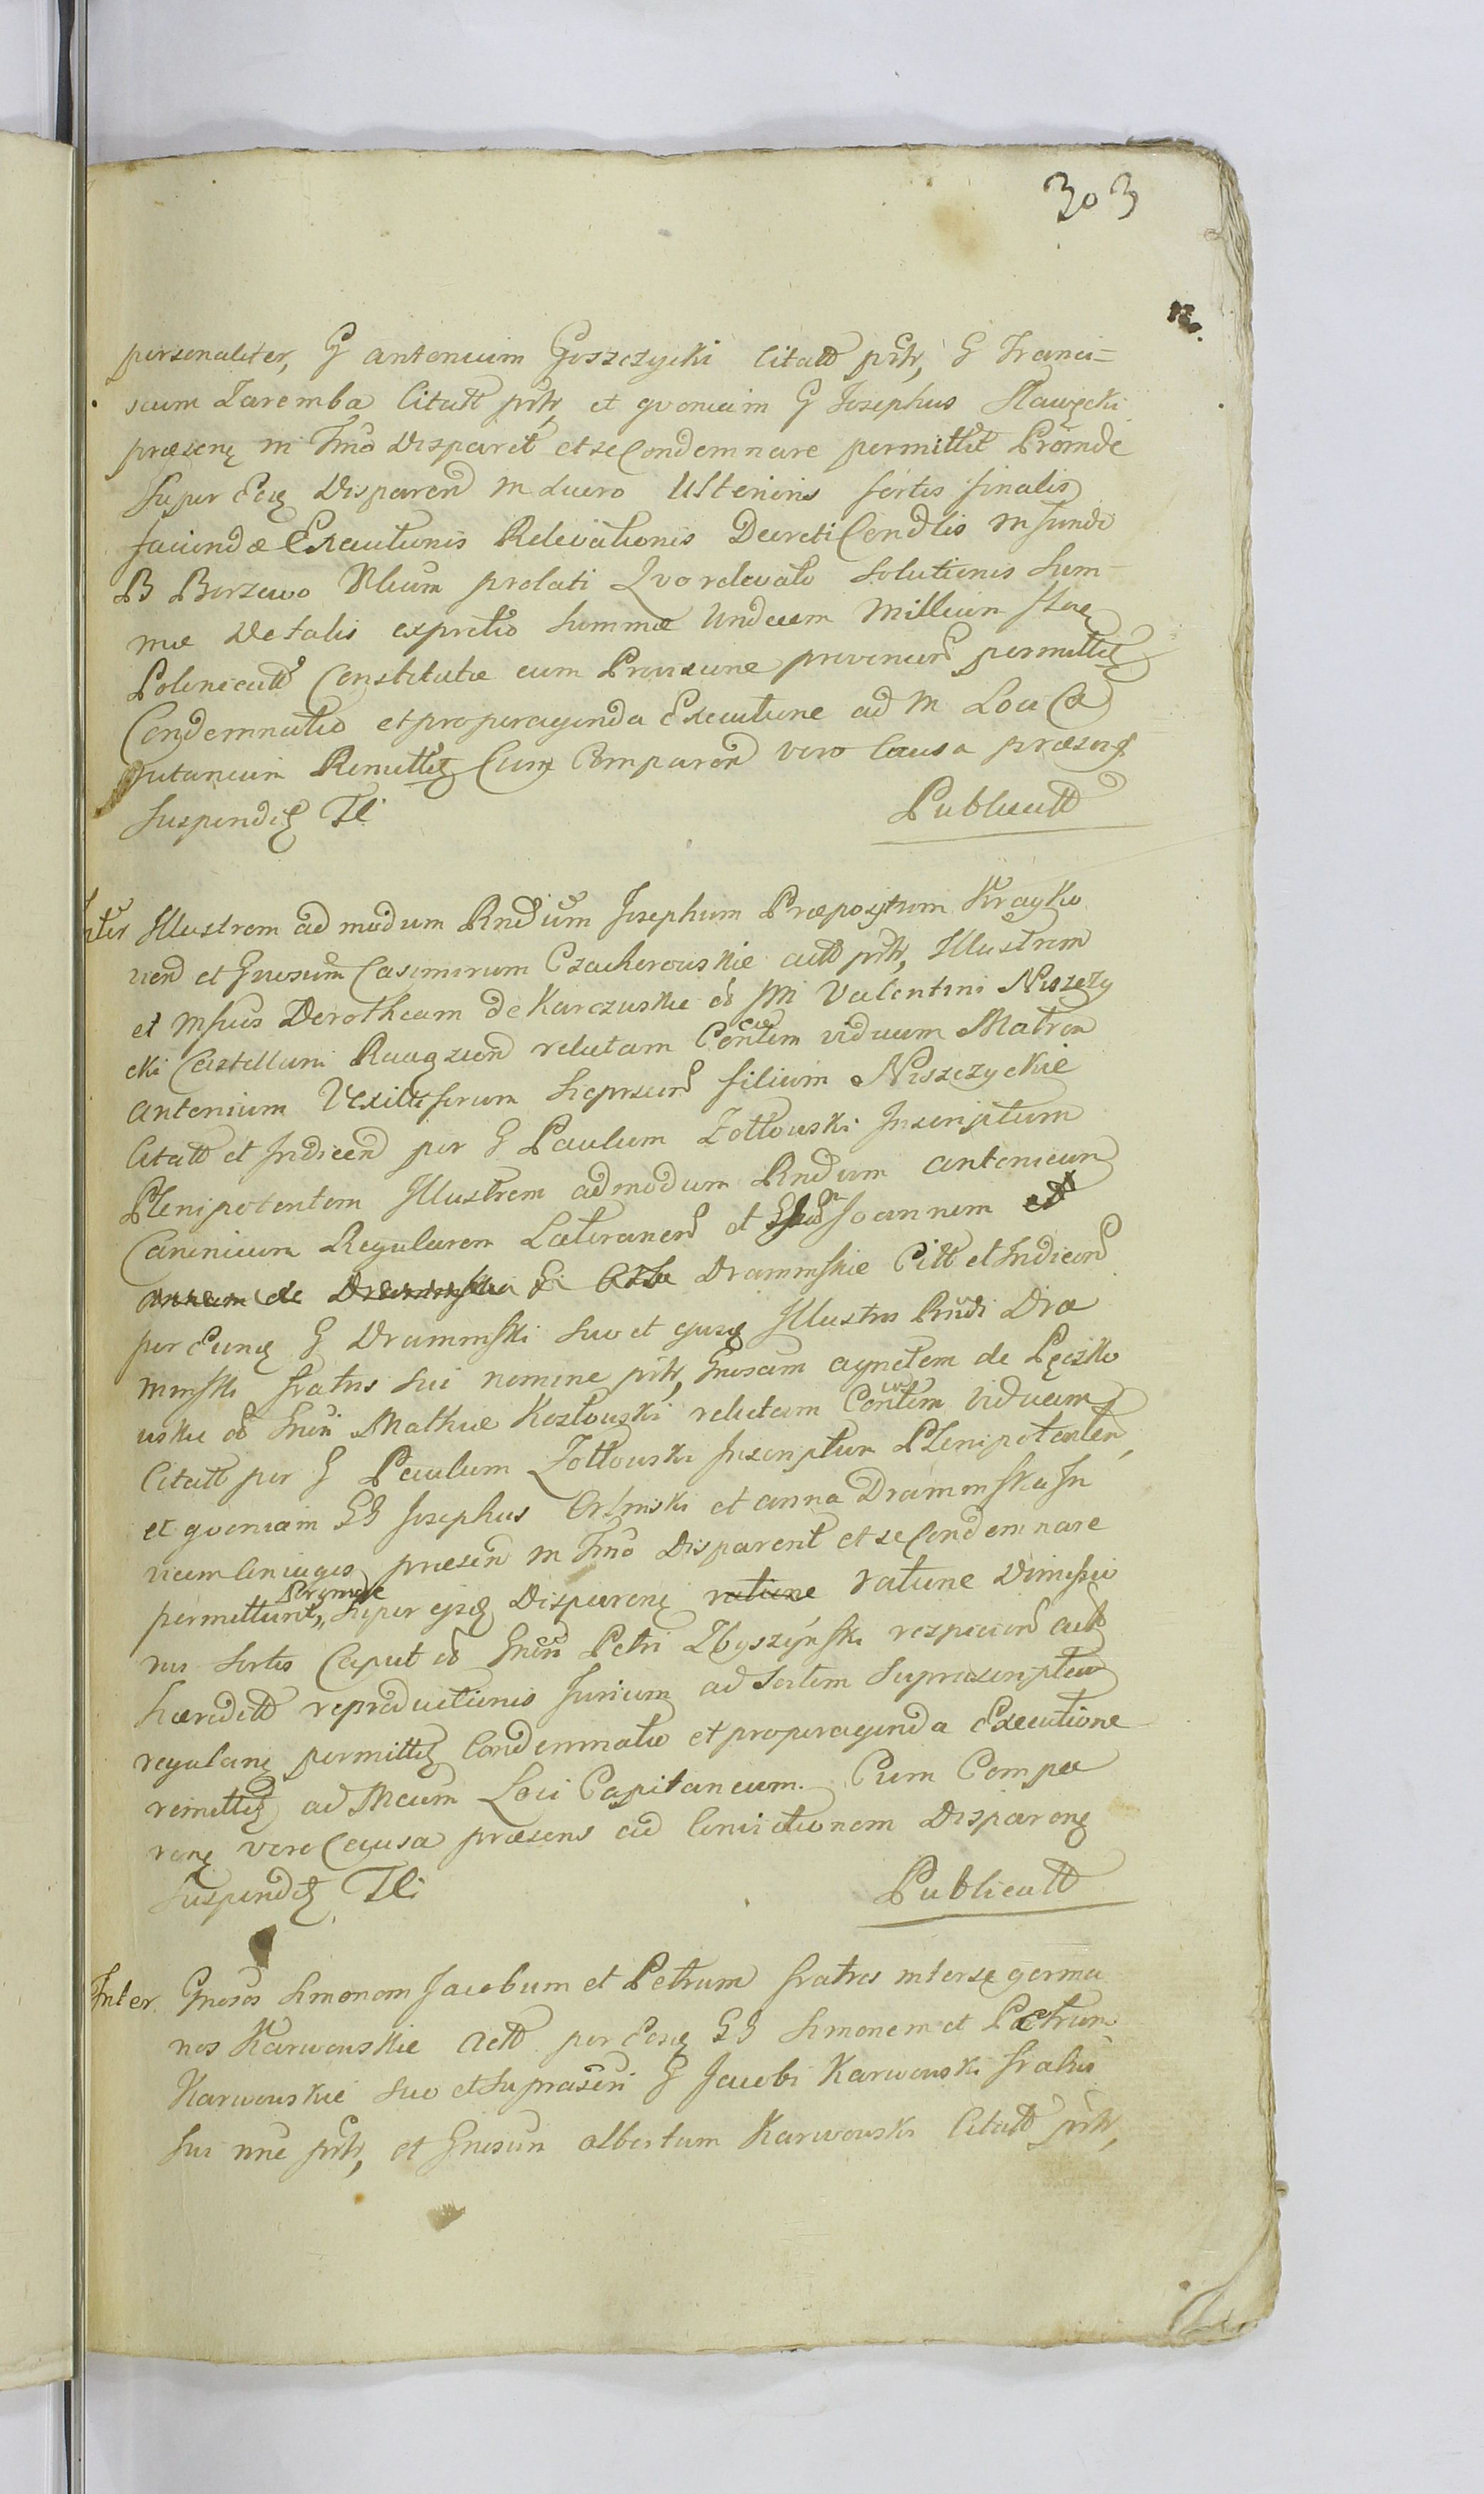 303
personaliter, G antonium Goszczycki Citatt prtr, G Franci=
scum Zaremba Citatt prtr, et qvoniam G Josephus Sławęcki
præsenq in Tmo Disparet et se Condemnare permittit Proinde
super Eoq Disparen in Lucro Ulterioris fortis finalis
faciendæ Executionis Relevationis Decreti Condlis in fundi
B Borzewo Vlium prolati Qvo relevato Solutionis Sum-
mæ Vetalis expretio Summæ Undecem Millium flor
Polonicatt Constitutæ cum Provisione provenien permittitq
Condemnatio et pro peragenda Executione ad M Loci Ca
pitaneum Remittitq Cum Comparen vero Causa præsens
Suspenditq Tli
Publicatt
Inter Illustrem ad modum Rndum Josephum Præpositum Krayko
vien et Gnosum Casimirum Czacherowskie actt prtr, Illustrem
et Mficus Dorotheam de Karczuskie ol Mi Valentini Niszczy
cki Castellani Raczien relictam Contem viduam Matrem
antonium Vexilliferum Sieprscien filium Niszczyckie
Citatt et Indicen per G Paulum Zołtowski Inscriptum
Plenipotentem Illustrem admodum Rndum antonium
Canonicum Regularem Lateranen et Gnosum Joannem et
annam de Draminska Drammskie Citt et Indicen
per Eunq G Drammski suo et ejusq Illustris Rndi Dra
minski fratris sui nomine prtr, Gnosam agnetem de Pęczko
uskie ol Gnri Mathiæ Kozłowski relictam Contem viduam
Citatt per G Paulum Zołtowski Inscriptum Plenipotentem,
et qvoniam GG Josephus Orlinski et anna Drammska In
vicem Coniuges præsen in Tmo Disparent et se Condemnare
permittunt, Proinde super ejsq Disparenq ratione ratione Dimissio
nis Sortis Caput ol Gnri Petri Zbyszyński respicien actt
hæreditt reproductionis Jurium ad Sortem Suprascriptam
regulanq permittitq Condemnatio et pro peragenda Executione
remittitq ad Mcum Loci Capitaneum. Cum Compa
renq vero Causa præsens ad Convictionem Disparenq
Suspenditq Tli
Publicatt
Inter Gnosos Simonem Jacobum et Petrum fratres inter se germa
nos Karwowskie Actt per Eosq GG Simonem et Petrum
Karwowskie suo et suprascri G Jacobi Karwowski fratris
sui nne prtr, et Gnosum albertum Karwowski Citatt prtr,